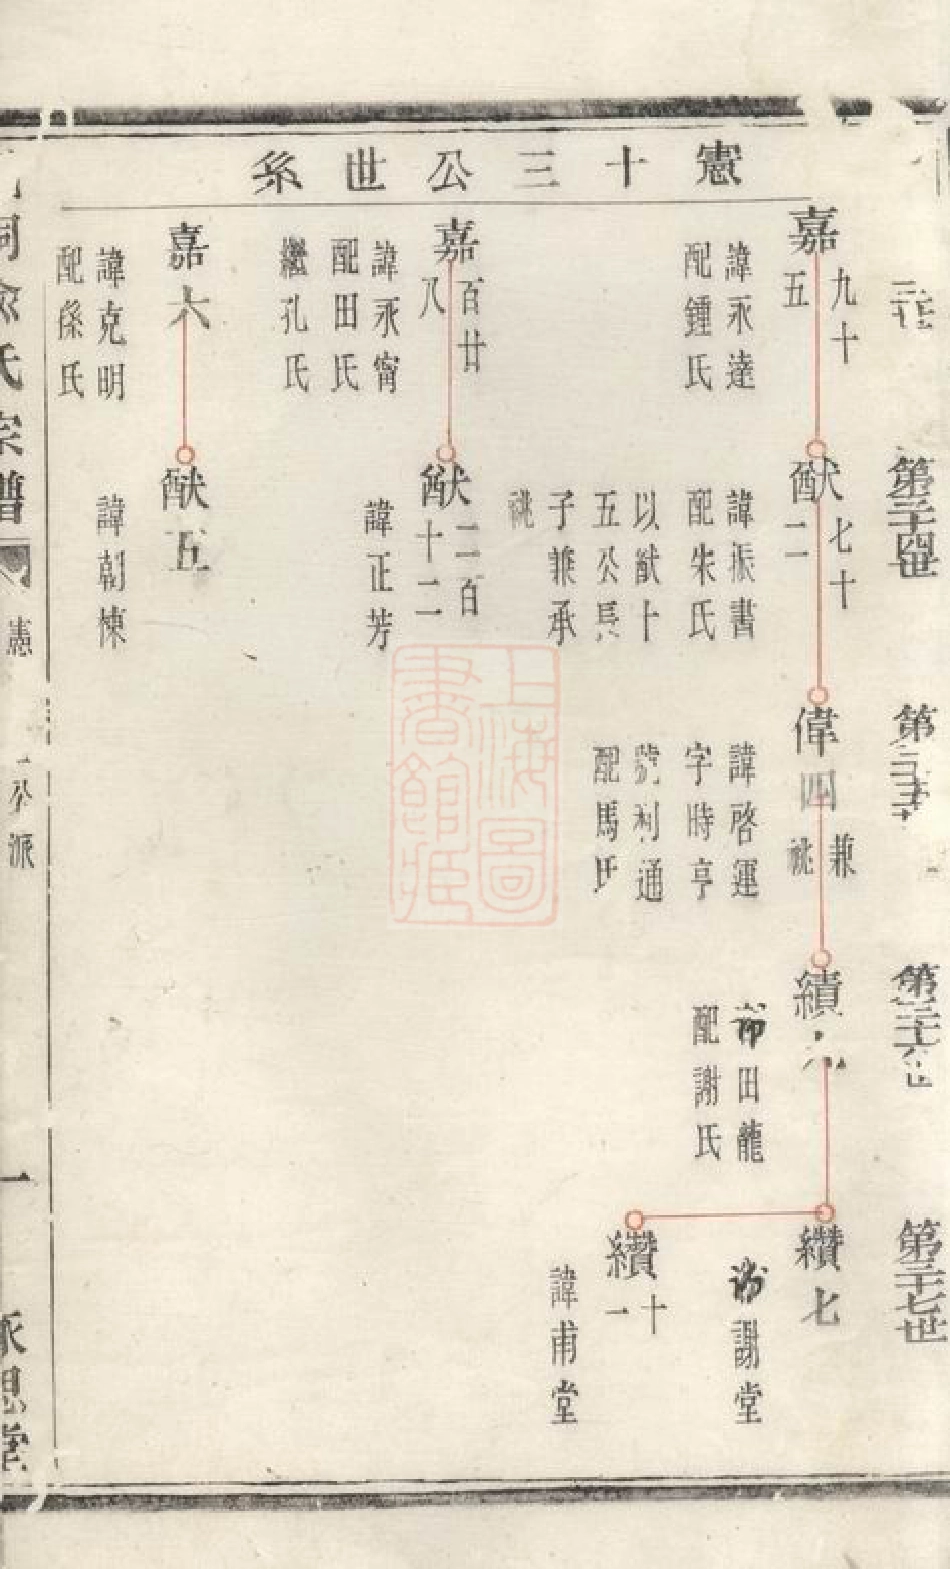 憲十三公世系
嘉九十五
諱永達
配鍾氏
猷七十二
諱振書
配朱氏
以猷十
五公長
子兼承
祧
偉四兼祧
諱啓運
字時亨
號利通
配馬氏
續
田龍
配謝氏
纘七
謝堂
纘十一
諱甫堂
嘉百廿八
諱永甯
配田氏
繼孔氏
猷二百十二
諱正芳
嘉六
諱克明
配係氏
猷五
諱朝棟
第二十四世
第二十五
第二十六世
第二十七世
氏宗譜
憲
公派
一
永思堂
上海圖書館藏